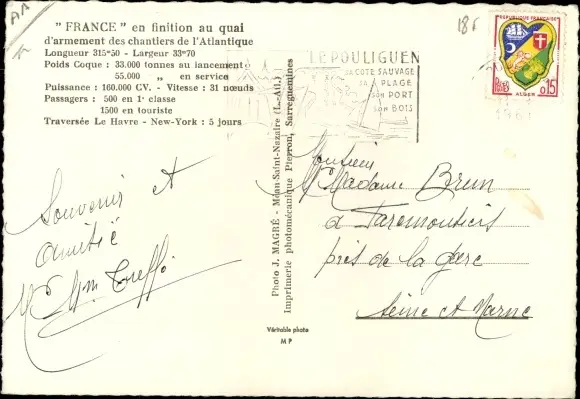 AR
18F
" FRANCE " en finition au quai
d'armement des chantiers de l'Atlantique
Longueur 315m50 - Largeur 33m70
Poids Coque : 33.000 tonnes au lancement
55.000 „ en service
Puissance : 160.000 CV. - Vitesse : 31 nœuds
Passagers : 500 en 1e classe
1500 en touriste
Traversée Le Havre - New-York : 5 jours
LE POULIGUEN
SA CÔTE SAUVAGE
SA PLAGE
SON PORT
SON BOIS
REPUBLIQUE FRANÇAISE
POSTES
ALGER
0,15
Souvenir et
amitié
Photo J. MAGRÉ - Méan-Saint-Nazaire (L.-Atl.)
Imprimerie photomécanique Pierron, Sarreguemines
Véritable photo
M P
Monsieur
Madame Brun
à Faremoutiers
près de la gare
Seine et Marne